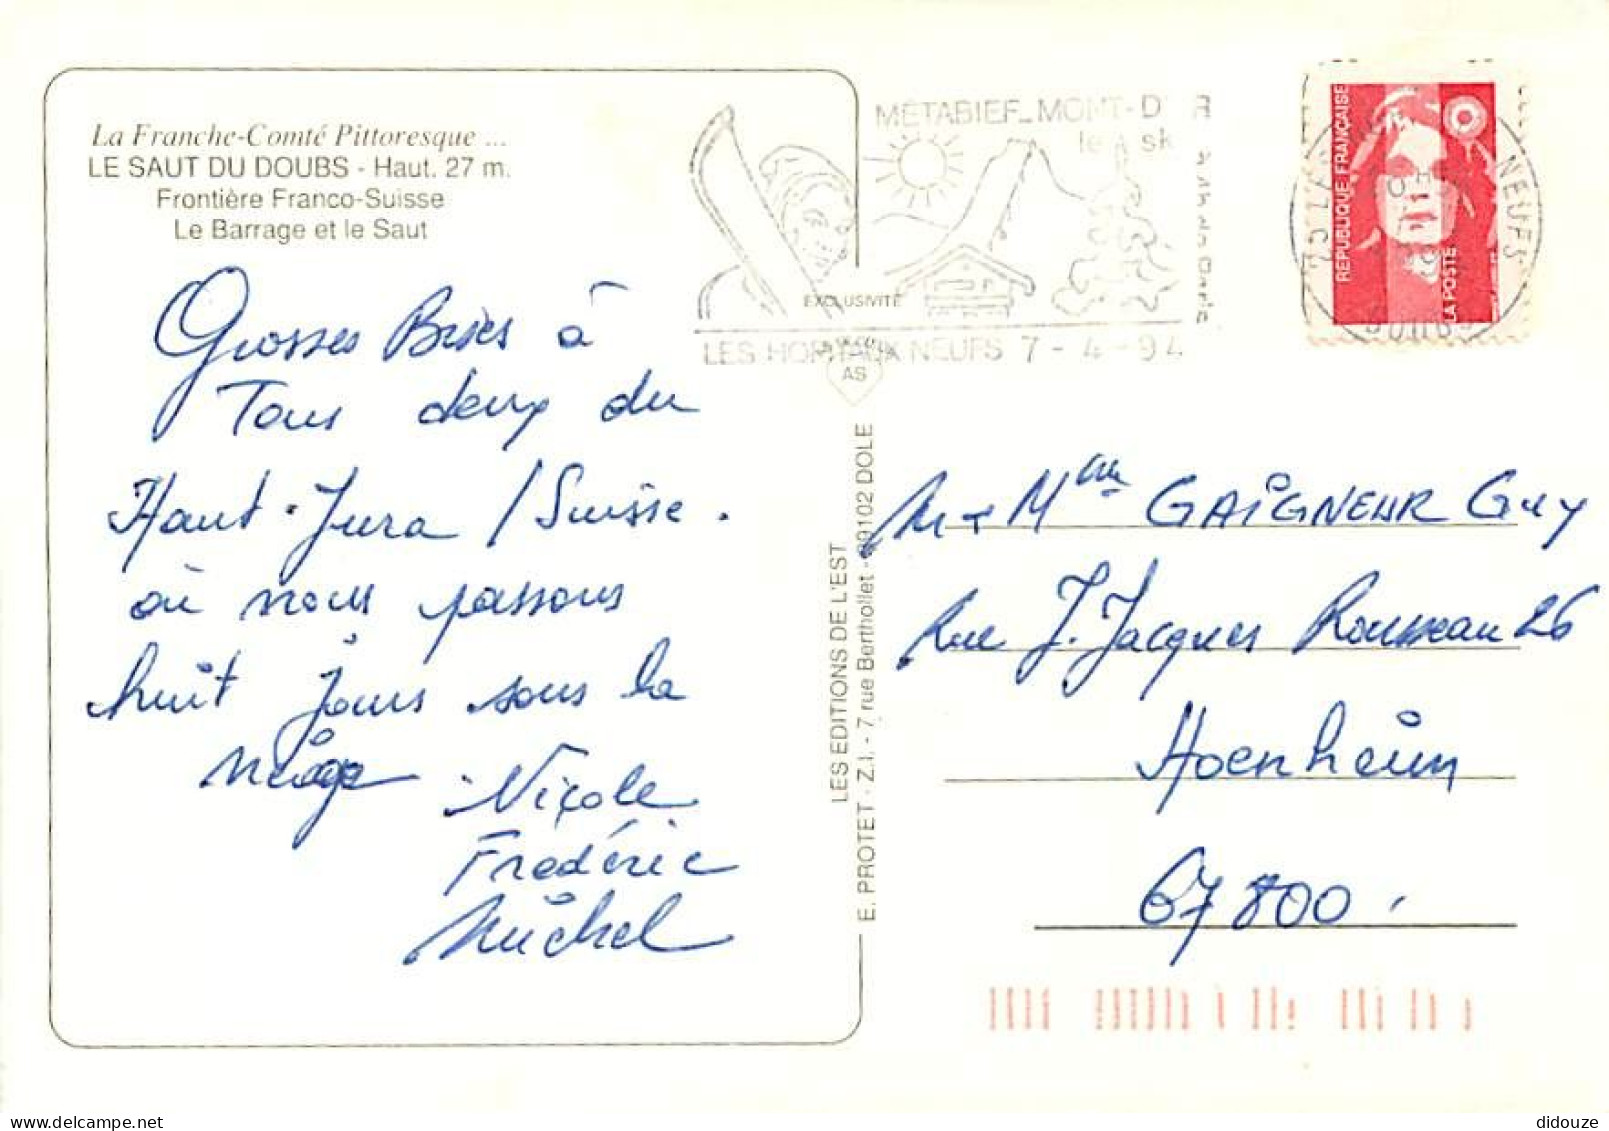 La Franche-Comté Pittoresque ...
LE SAUT DU DOUBS - Haut. 27 m.
Frontière Franco-Suisse
Le Barrage et le Saut
Grosses Bises à
Tous deux du
Haut-Jura / Suisse.
où nous passons
huit jours sous la
neige
Nicole
Frédéric
Michel
MÉTABIEF_MONT-D'OR
le ski
LES HOPITAUX NEUFS 7 - 4 - 94
EXCLUSIVITÉ
AS
LES EDITIONS DE L'EST
E. PROTET - Z.I. - 7 rue Berthollet - 39102 DOLE
REPUBLIQUE FRANÇAISE
LA POSTE
NEUFS
DOUBS
M + Mme GAIGNEUR Guy
Rue J. Jacques Rousseau 26
Hoenheim
67800.
didouze
delcampe.net